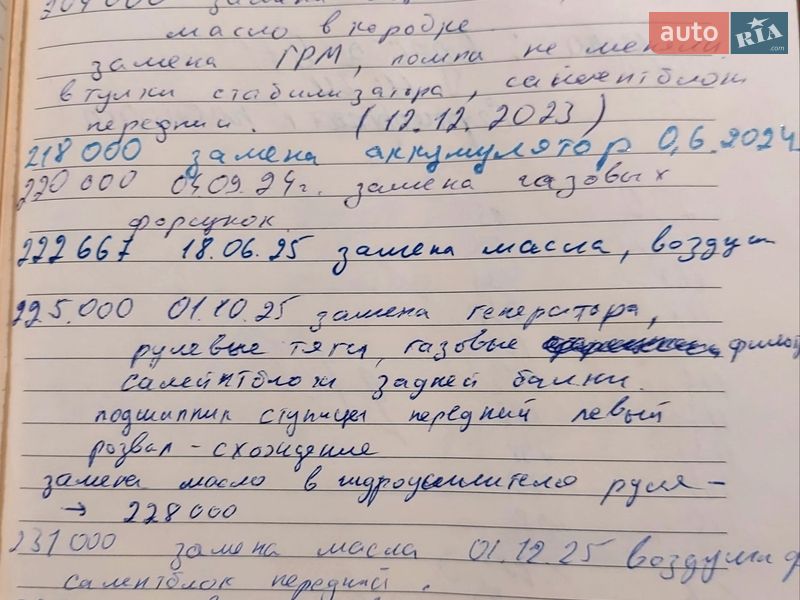 масло в коробке
замена ГРМ, помпа не меняли
втулки стабилизатора, сайлентблок
передний. (12.12.2023)
218000 замена аккумулятор 0,6.2024
220000 04.09.24г. замена газовых
форсунок.
222667 18.06.25 замена масла, воздуш
225.000 01.10.25 замена генератора,
рулевые тяги, газовые фильт
салейнтблоки задней балки.
подшипник ступицы передний левый
розвал-схождение
замена масло в гидроусилителе руля-
→ 228000
231000 замена масла 01.12.25 воздушн ф
салентблок передний.
auto RIA.com